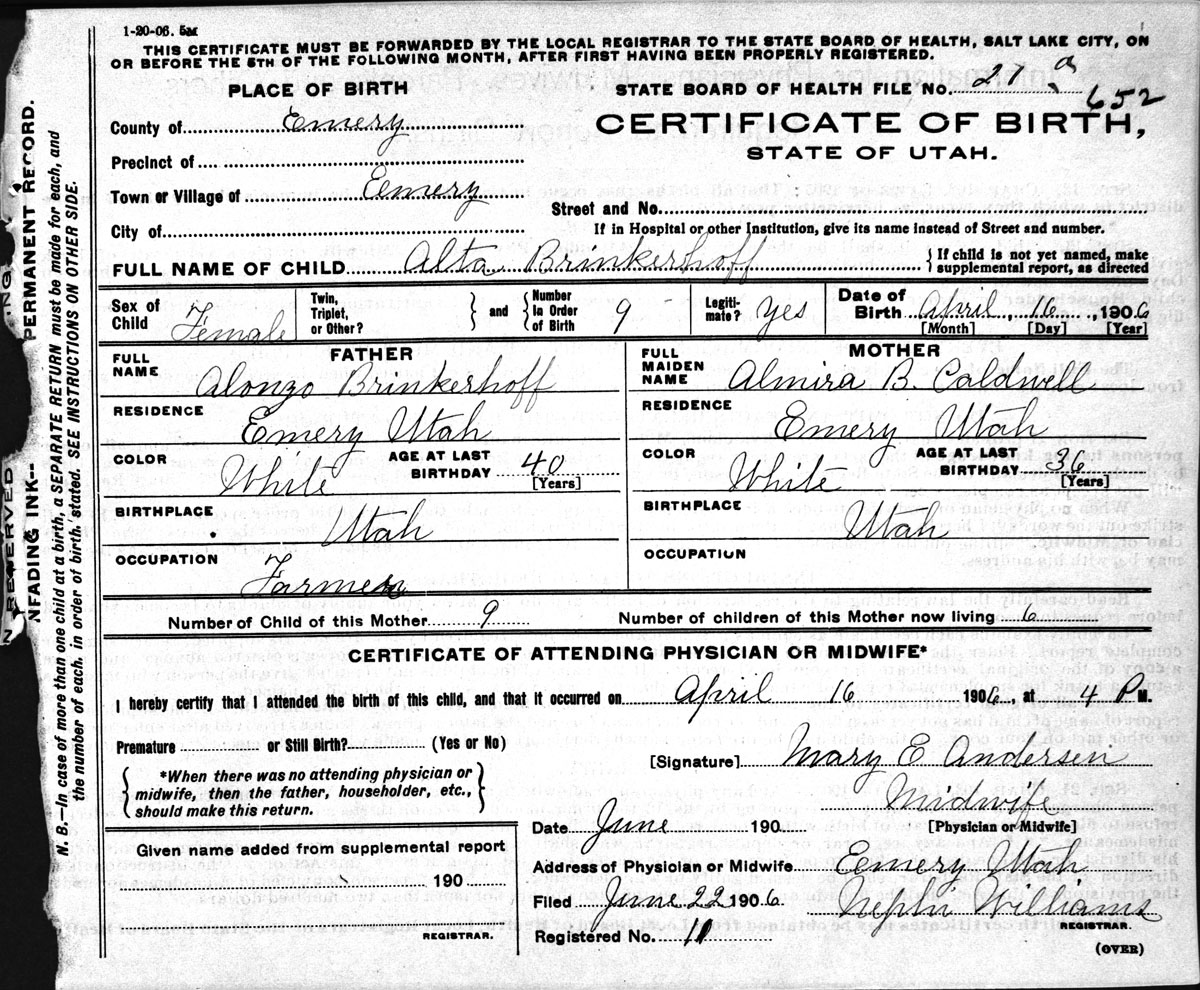 1-20-06. 5M
THIS CERTIFICATE MUST BE FORWARDED BY THE LOCAL REGISTRAR TO THE STATE BOARD OF HEALTH, SALT LAKE CITY, ON
OR BEFORE THE 5TH OF THE FOLLOWING MONTH, AFTER FIRST HAVING BEEN PROPERLY REGISTERED.
PLACE OF BIRTH
STATE BOARD OF HEALTH FILE No. 27 a
652
County of Emery
CERTIFICATE OF BIRTH,
STATE OF UTAH.
Precinct of
Town or Village of Eemery
Street and No.
City of
If in Hospital or other Institution, give its name instead of Street and number.
FULL NAME OF CHILD Alta Brinkerhoff { If child is not yet named, make
supplemental report, as directed
Sex of Child Female
Twin, Triplet, or Other? } and { Number In Order of Birth 9
Legiti-mate? yes
Date of Birth April, 16, 1906
[Month] [Day] [Year]
FATHER
FULL NAME Alonzo Brinkerhoff
RESIDENCE Emery Utah
COLOR White AGE AT LAST BIRTHDAY 40 [Years]
BIRTHPLACE Utah
OCCUPATION Farmer
MOTHER
FULL MAIDEN NAME Almira B. Caldwell
RESIDENCE Emery Utah
COLOR White AGE AT LAST BIRTHDAY 36 [Years]
BIRTHPLACE Utah
OCCUPATION
Number of Child of this Mother 9 Number of children of this Mother now living 6
CERTIFICATE OF ATTENDING PHYSICIAN OR MIDWIFE*
I hereby certify that I attended the birth of this child, and that it occurred on April 16 1906, at 4 P M.
Premature or Still Birth? (Yes or No)
[Signature] Mary E Andersen
{ *When there was no attending physician or
midwife, then the father, householder, etc.,
should make this return. }
Midwife
[Physician or Midwife]
Date June 190
Given name added from supplemental report
190
REGISTRAR.
Address of Physician or Midwife Eemery Utah
Filed June 22 1906. Nephi Williams
REGISTRAR.
Registered No. 11
(OVER)
PERMANENT RECORD.
NFADING INK--
N. B.—In case of more than one child at a birth, a SEPARATE RETURN must be made for each, and
the number of each, in order of birth, stated. SEE INSTRUCTIONS ON OTHER SIDE.